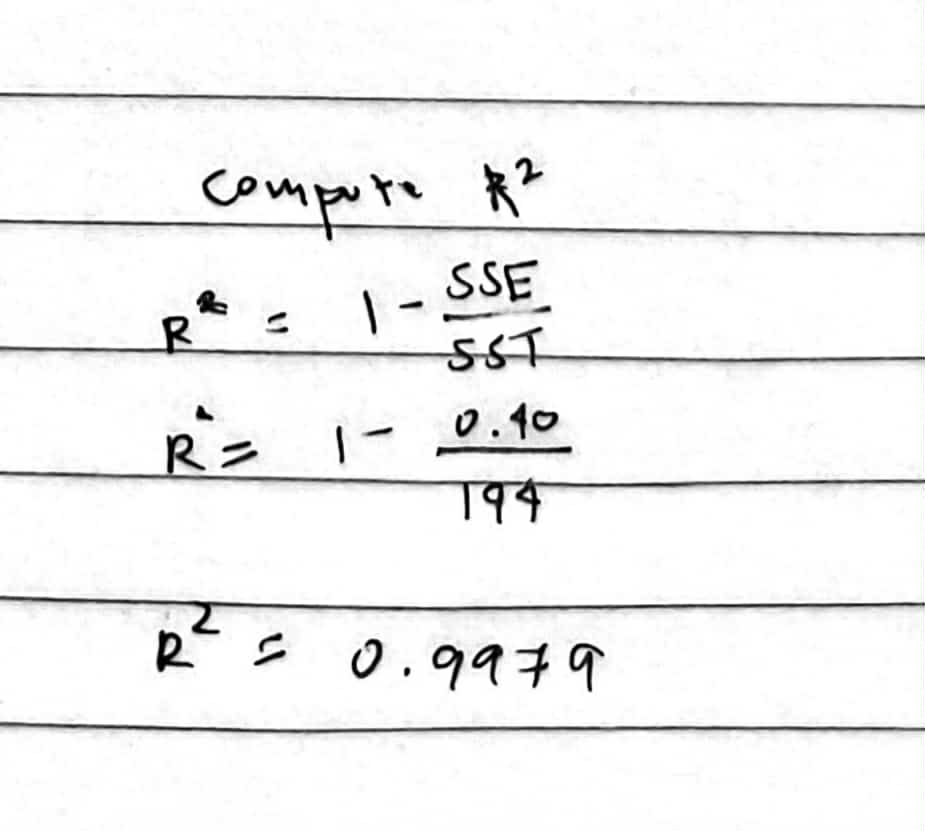 Compute R²
R² = 1 - SSE/SST
R² = 1 - 0.40/194
R² = 0.9979